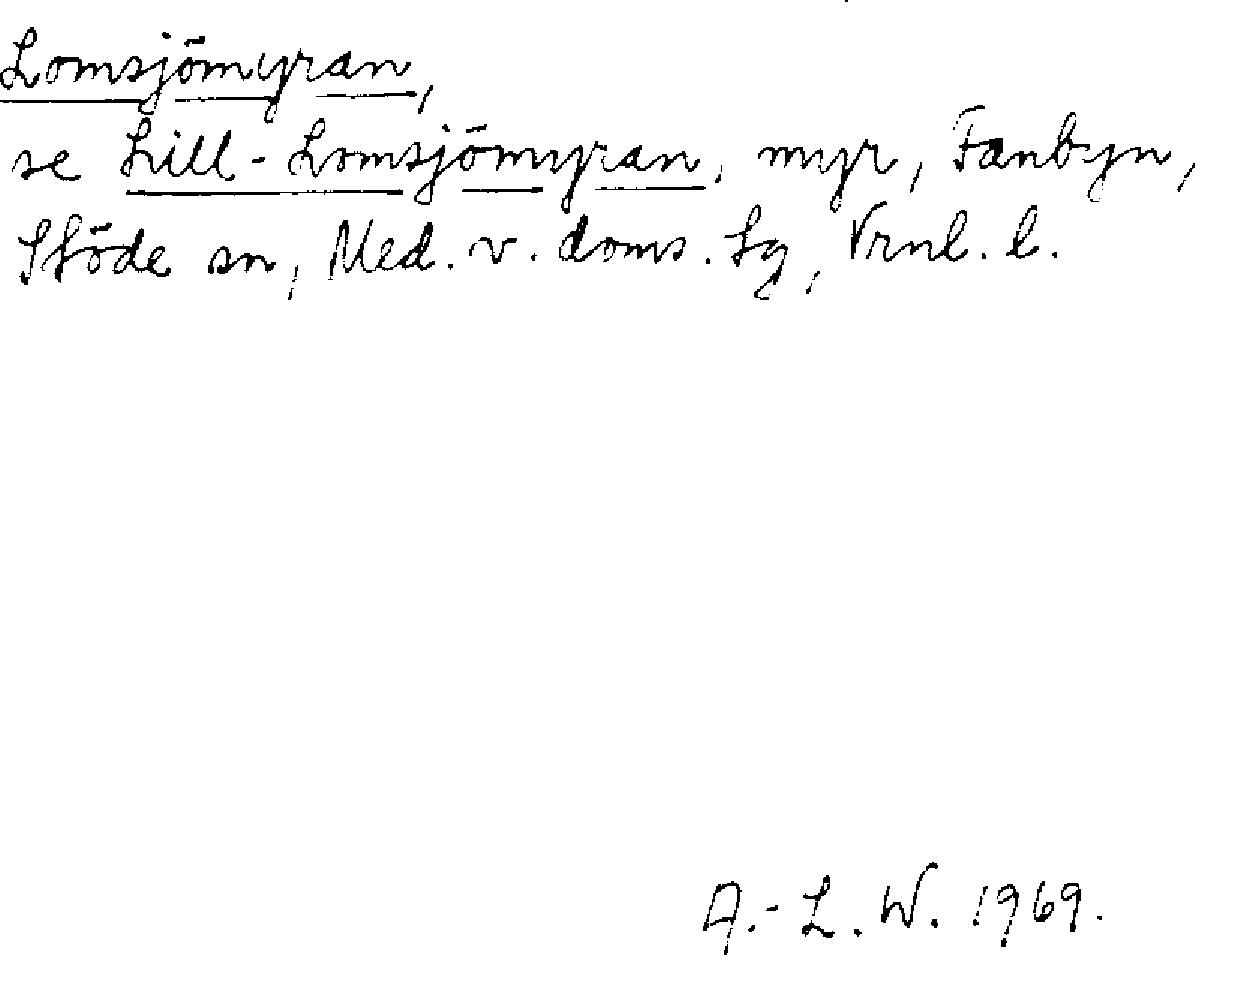 Lomsjömyran,
se Lill-Lomsjömyran, myr, Fanbyn,
Stöde sn, Med. v. doms. tg, Vrnl. l.
A.-L. W. 1969.